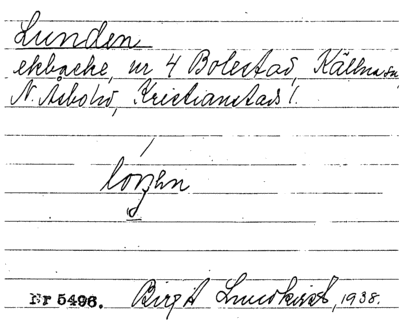 Lunden
ekbacke, nr 4 Bolestad, Källna sn,
N. Åsbo hd, Kristianstads l.
Nr 5496. Birgit Lundkvist, 1938.